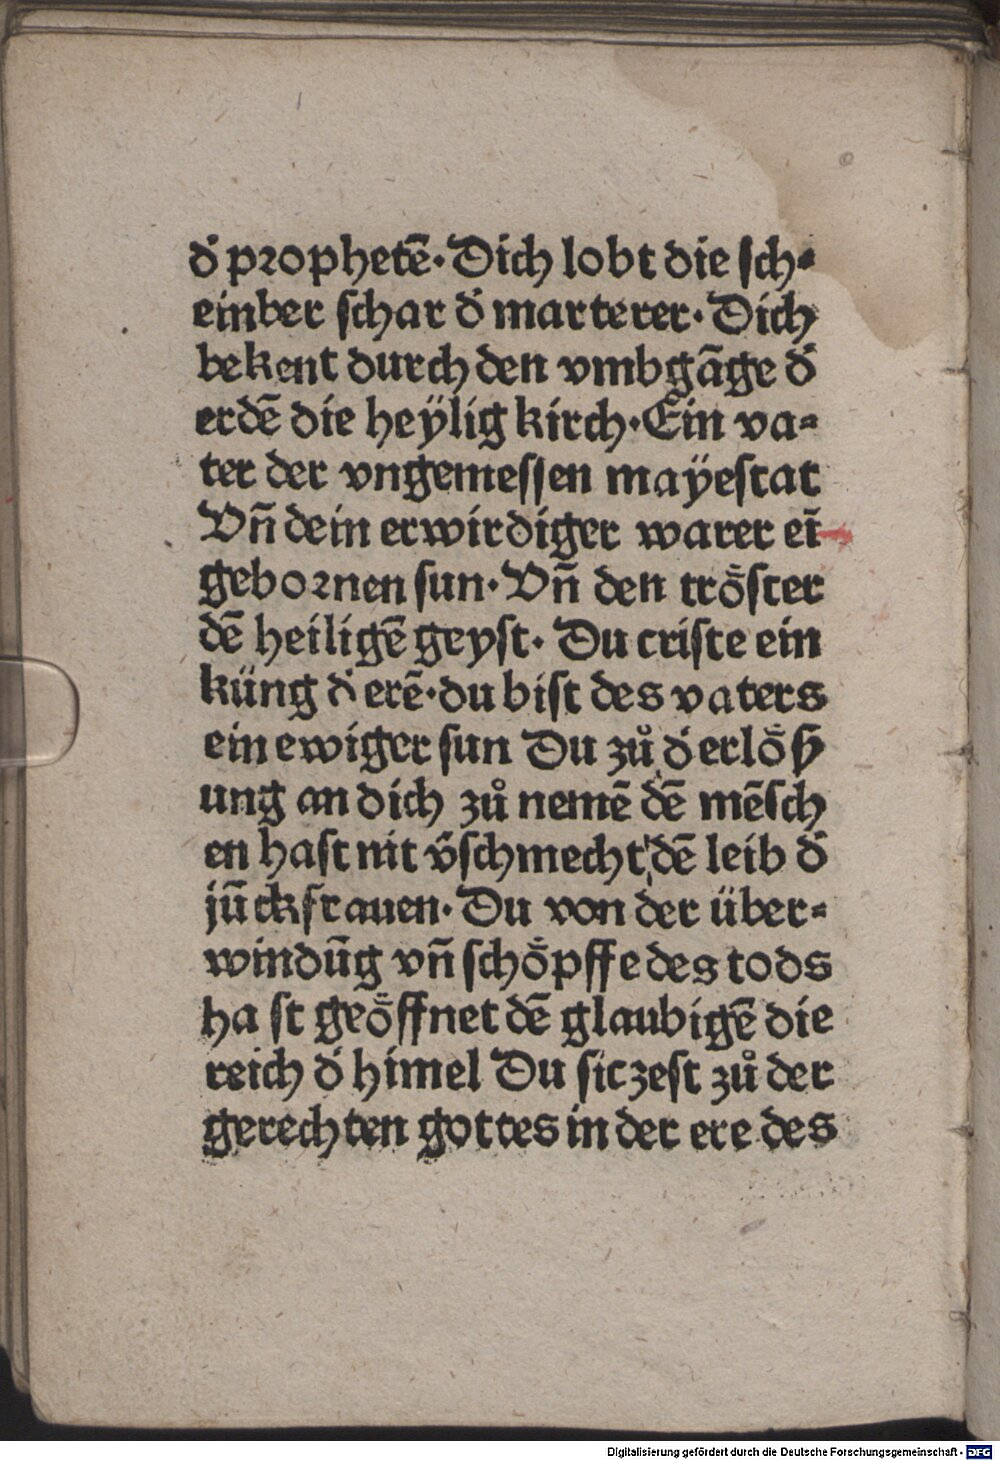 dˀ prophetē. Dich lobt die sch⸗
einber schar dˀ marterer. Dich
bekent durch den vmbgāge dˀ
erdē die heÿlig kirch. Ein va⸗
ter der vngemessen maÿestat
Vn̄ dein erwirdiger warer eī
gebornen sun. Vn̄ den trö́ster
dē heiligē geyst. Du criste ein
küng dˀ erē. du bist des vaters
ein ewiger sun Du zů dˀ erlöß
ung an dich zů nemē dē mēsch
en hast nit v̄schmecht dē leib dˀ
jūckfrauen. Du von der über⸗
windūg vn̄ schöpffe des tods
hast geöffnet dē glaubigē die
reich dˀ himel Du siczest zů der
gerechten gottes in der ere des
Digitalisierung gefördert durch die Deutsche Forschungsgemeinschaft - DFG